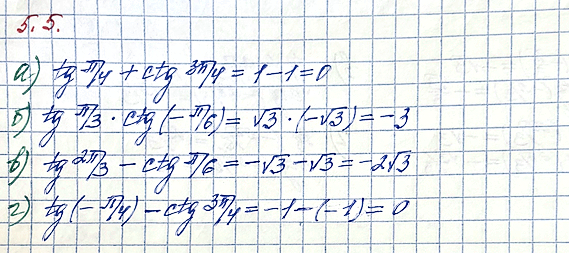 5.5.
а) tg π/4 + ctg 3π/4 = 1 - 1 = 0
б) tg π/3 · ctg (- π/6) = √3 · (-√3) = -3
в) tg 2π/3 - ctg π/6 = -√3 - √3 = -2√3
г) tg (- π/4) - ctg 3π/4 = -1 - (-1) = 0